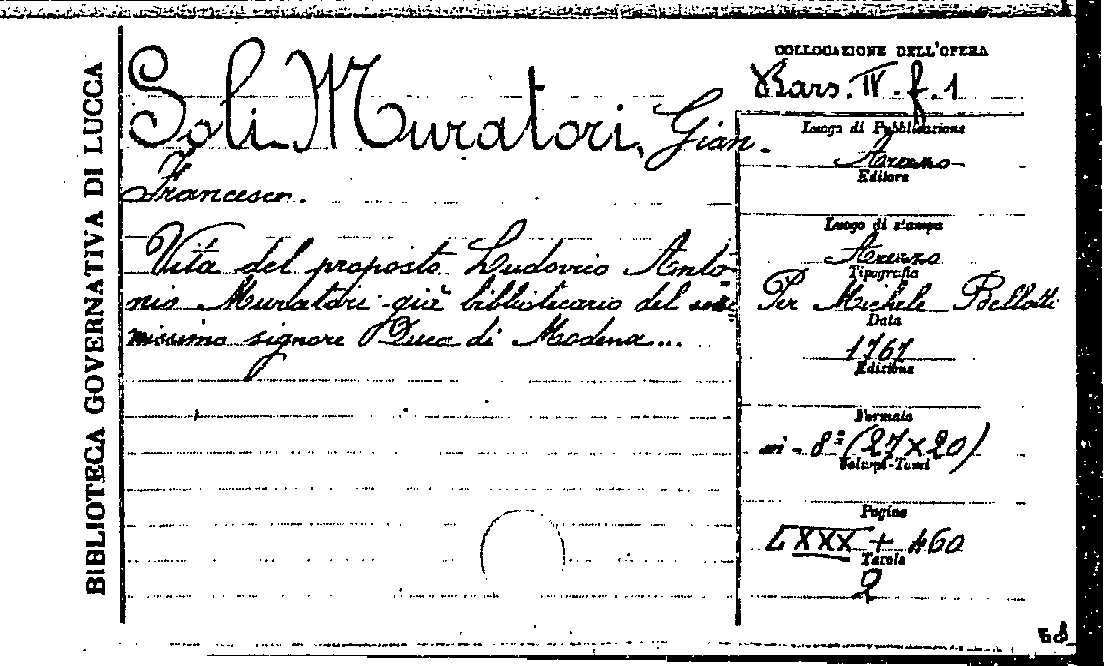 BIBLIOTECA GOVERNATIVA DI LUCCA
Soli Muratori, Gian
Francesco.
Vita del proposto Ludovico Anto-
nio Muratori già bibliotecario del sere
nissimo signore Duca di Modena...
COLLOCAZIONE DELL'OPERA
Bars. IV. f. 1
Luogo di Pubblicazione
Arezzo
Editore
Luogo di stampa
Arezzo
Tipografia
Per Michele Bellotti
Data
1767
Edizione
Formato
in - 8º (27×20)
Volumi-Tomi
Pagine
LXXX + 460
Tavole
2